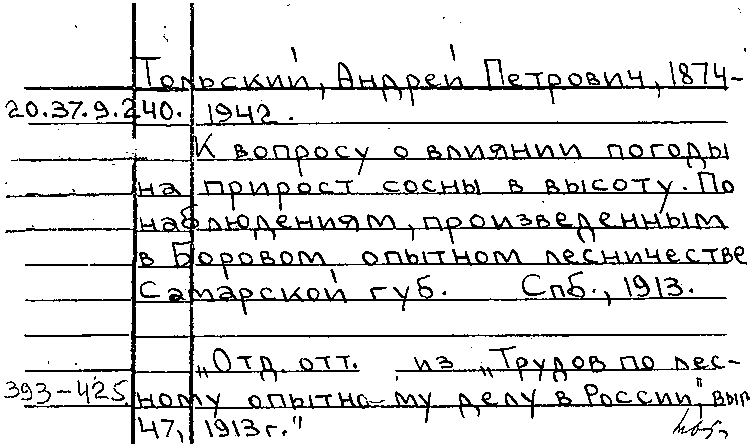 Тольский, Андрей Петрович, 1874-
20.37.9.240. 1942.
К вопросу о влиянии погоды
на прирост сосны в высоту. По
наблюдениям, произведенным
в Боровом опытном лесничестве
Самарской губ. Спб., 1913.
„Отд. отт. из „Трудов по лес-
393-425. ному опытно-му делу в России", вып
47, 1913 г."